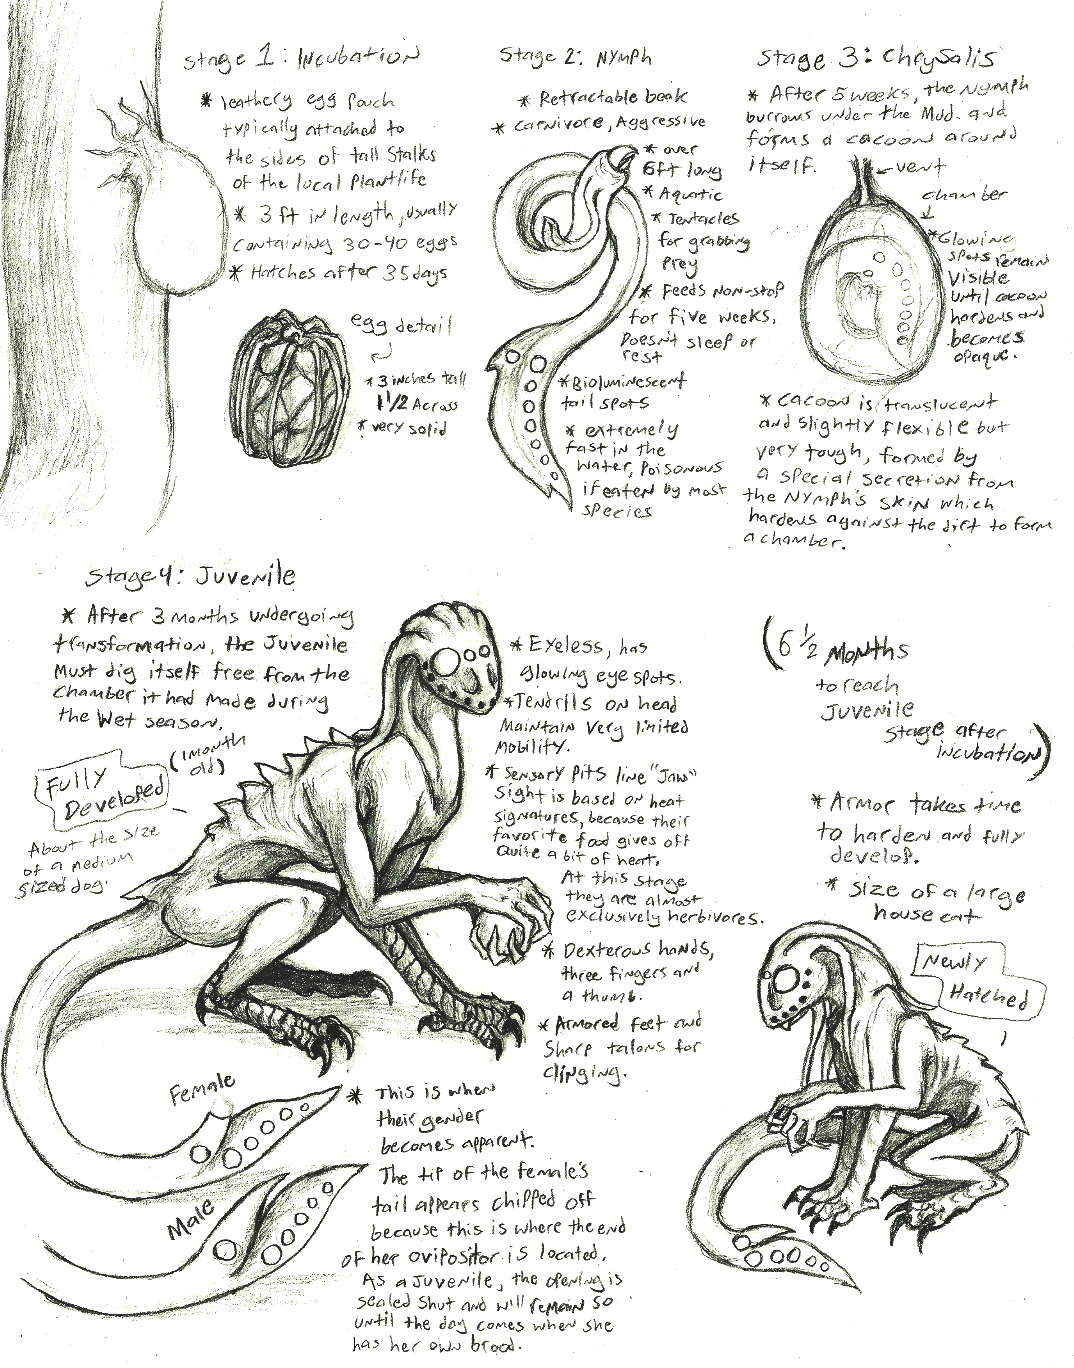 Stage 1: Incubation
* leathery egg pouch
typically attached to
the sides of tall stalks
of the local plantlife
* 3 ft in length, usually
containing 30-40 eggs
* Hatches after 35 days
egg detail
* 3 inches tall
1 1/2 Across
* very solid
Stage 2: Nymph
* Retractable beak
* Carnivore, Aggressive
* over
6ft long
* Aquatic
* Tentacles
for grabbing
prey
* Feeds non-stop
for five weeks,
Doesn't sleep or
rest
* Bioluminescent
tail spots
* extremely
fast in the
water, poisonous
if eaten by most
species
Stage 3: Chrysalis
* After 5 weeks, the Nymph
burrows under the Mud. and
forms a cacoon around
itself.
vent
chamber
* Glowing
spots remain
visible
until cacoon
hardens and
becomes
opaque.
* cacoon is translucent
and slightly flexible but
very tough, formed by
a special secretion from
the Nymph's skin which
hardens against the dirt to form
a chamber.
Stage 4: Juvenile
* After 3 months undergoing
transformation, the Juvenile
Must dig itself free from the
Chamber it had made during
the wet season.
(1 month
old)
Fully
Developed
About the size
of a medium
sized dog.
* Eyeless, has
glowing eye spots.
* Tendrils on head
Maintain very limited
mobility.
* Sensory pits line "Jaw"
Sight is based on heat
signatures, because their
favorite food gives off
Quite a bit of heat.
At this stage
they are almost
exclusively herbivores.
* Dexterous hands,
three fingers and
a thumb.
* Armored feet and
Sharp talons for
clinging.
(6 1/2 months
to reach
Juvenile
stage after
incubation)
* Armor takes time
to harden and fully
develop.
* Size of a large
house cat
Newly
Hatched
Female
Male
* This is when
their gender
becomes apparent.
The tip of the female's
tail appears chipped off
because this is where the end
of her ovipositor is located.
As a Juvenile, the opening is
sealed shut and will remain so
until the day comes when she
has her own brood.